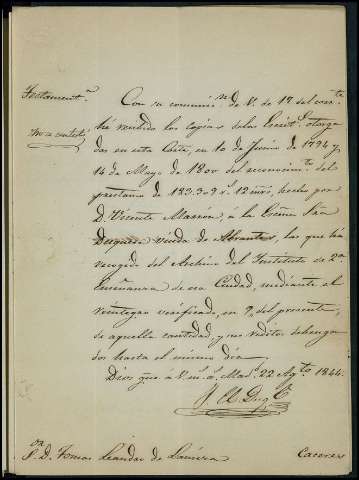 Testament.ª
Con su comunic.ⁿ de V. de 17 del corr.te
he recibido las copias de las Escrit.s otorga
No se contestó
das en esta Corte, en 10 de Junio de 1794 y
14 de Mayo de 1800 del reconocim.to del
prestamo de 133.3.9 r.s 12 mrs, hecho por
D. Vicente Marron, a la Exma Sra
Duquesa viuda de Abrantes, las que ha
recogido del Archivo del Instituto de 2.ª
Enseñanza de esa Ciudad, mediante el
reintegro verificado, en 9, del presente,
de aquella cantidad, y sus reditos devenga
dos hasta el mismo día.
Dios gue. á V. m.s a.s Mad.d 22 Ag.to 1844.
J. El Duq.
S.or D. Tomas Leandro de
Caceres